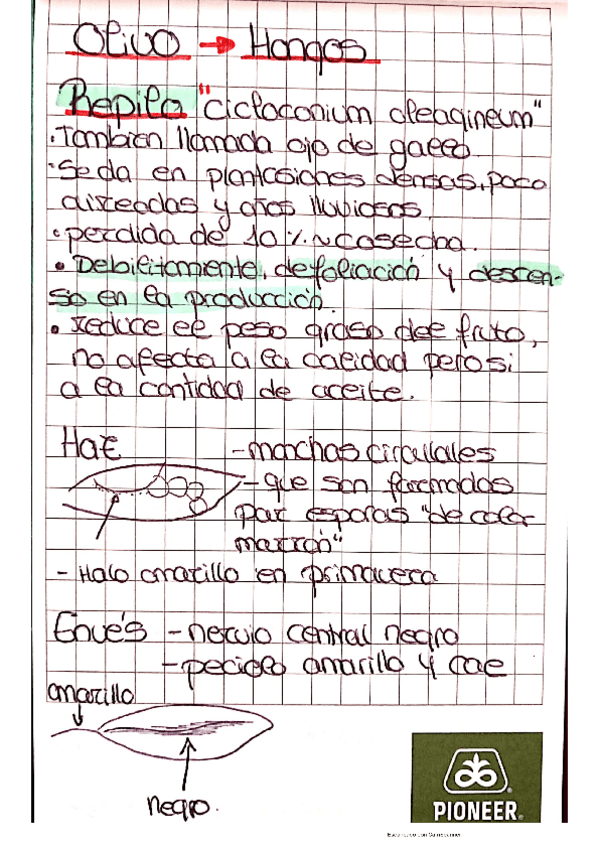 Olivo → Hongos
Repilo "cicloconium oleagineum"
·Tambien llamada ojo de gallo
·Se da en plantasiones densas, poco
aireadas y años lluviosos.
·perdida de 10% ~ cosecha.
• Debilitamiente, defoliación y descen-
so en la producción.
• reduce el peso graso del fruto,
no afecta a la calidad pero si
a la cantidad de aceite.
Haz
- manchas circullales
- que son formadas
por esporas "de color
marrón"
- Halo amarillo en primavera
Envés - nervio central negro
- peciolo amarillo y cae
amarillo
negro.
PIONEER.
Escaneado con CamScanner